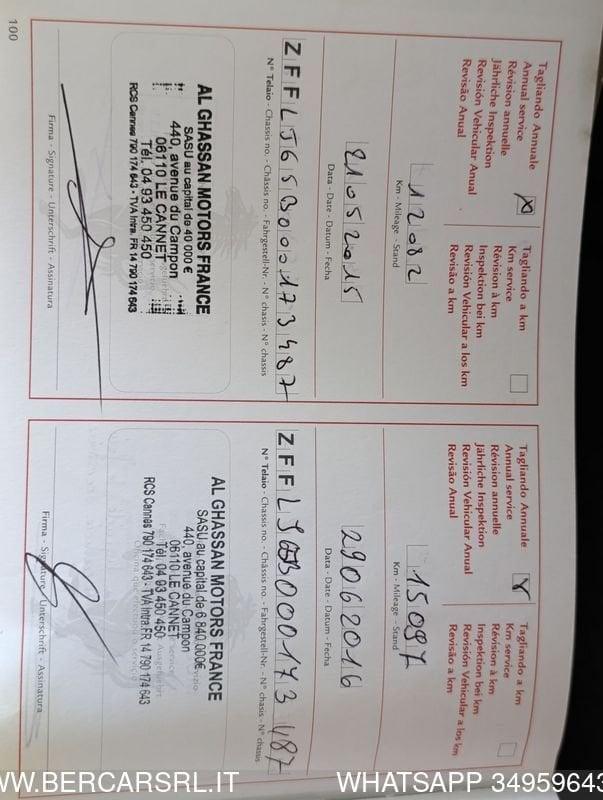 Tagliando Annuale
Annual service
Révision annuelle
Jährliche Inspektion
Revisión Vehicular Anual
Revisão Anual
X
Tagliando a km
Km service
Révision à km
Inspektion bei km
Revisión Vehicular a los km
Revisão a km
12082
Km - Mileage - Stand
21052015
Data - Date - Datum - Fecha
N° Telaio - Chassis no. - Châssis no. - Fahrgestell-Nr. - N° chasis - N° chassis
AL GHASSAN MOTORS FRANCE
SASU au capital de 40 000 €
440, avenue du Campon
06110 LE CANNET
Tél. 04 93 450 450
RCS Cannes 790 174 643 - TVA Intra. FR 14 790 174 643
Firma - Signature - Unterschrift - Assinatura
Tagliando Annuale
Annual service
Révision annuelle
Jährliche Inspektion
Revisión Vehicular Anual
Revisão Anual
Tagliando a km
Km service
Révision à km
Inspektion bei km
Revisión Vehicular a los km
Revisão a km
15097
Km - Mileage - Stand
29062016
Data - Date - Datum - Fecha
N° Telaio - Chassis no. - Châssis no. - Fahrgestell-Nr. - N° chasis - N° chassis
AL GHASSAN MOTORS FRANCE
SASU au capital de 6 840 000€
440, avenue du Campon
06110 LE CANNET
Tél. 04 93 450 450
RCS Cannes 790 174 643 - TVA Intra. FR 14 790 174 643
Firma - Signature - Unterschrift - Assinatura
100
WW.BERCARSRL.IT
WHATSAPP 34959643